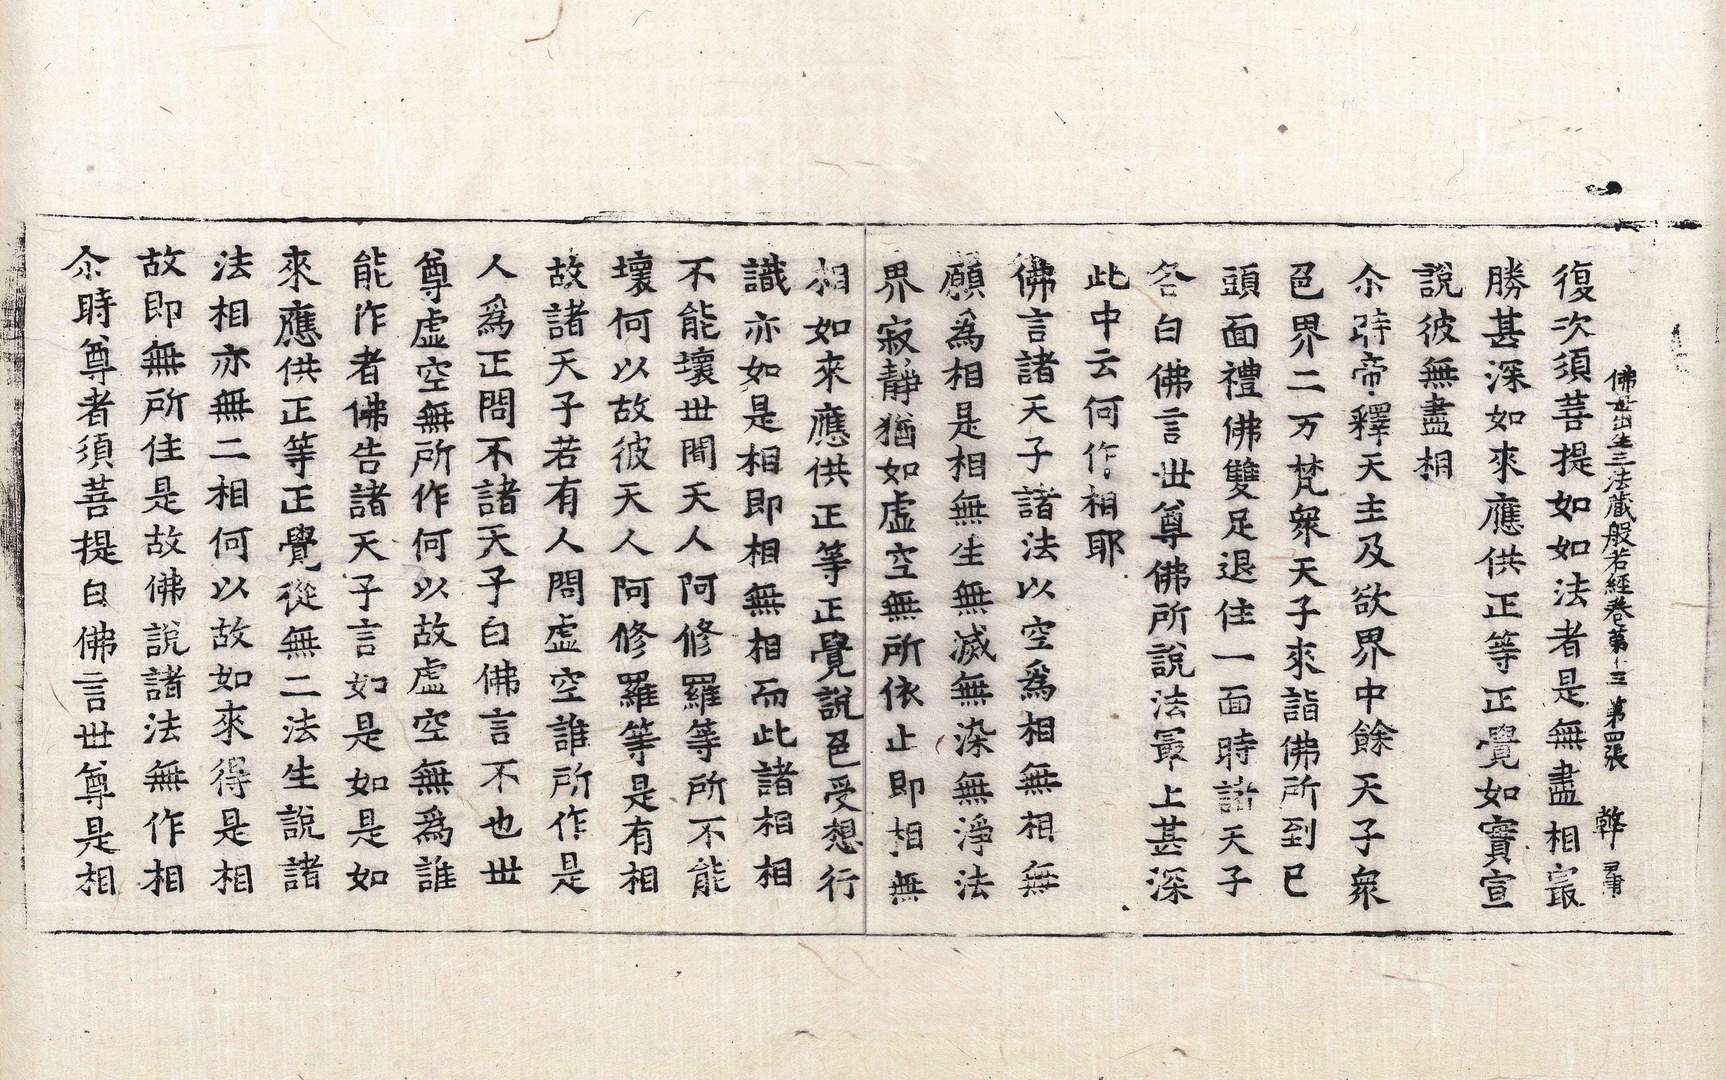 佛母出生三法藏般若經卷第十三 第四張 㪍
復次須菩提如如法者是無盡相㝡
勝甚深如來應供正等正覺如實宣
說彼無盡相
尒時帝釋天主及欲界中餘天子衆
色界二万梵衆天子來詣佛所到已
頭面禮佛雙足退住一面時諸天子
各白佛言世尊佛所說法㝡上甚深
此中云何作相耶
佛言諸天子諸法以空爲相無相無
願爲相是相無生無滅無染無淨法
界寂靜猶如虛空無所依止即相無
相如來應供正等正覺說色受想行
識亦如是相即相無相而此諸相相
不能壞世間天人阿修羅等所不能
壞何以故彼天人阿修羅等是有相
故諸天子若有人問虛空誰所作是
人爲正問不諸天子白佛言不也世
尊虛空無所作何以故虛空無爲誰
能作者佛告諸天子言如是如是如
來應供正等正覺從無二法生說諸
法相亦無二相何以故如來得是相
故即無所住是故佛說諸法無作相
尒時尊者須菩提白佛言世尊是相